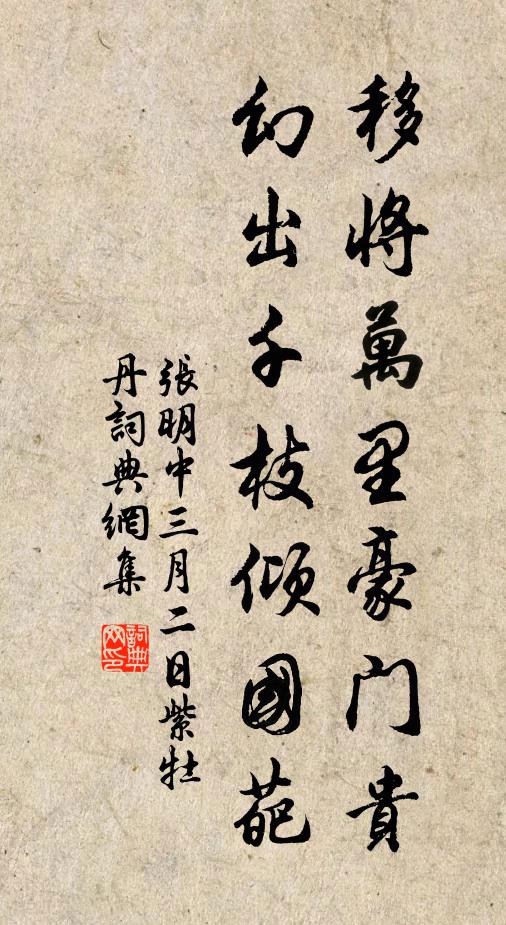 移將萬里豪門貴
幻出千枝傾國葩
張明中三月二日紫牡
丹詞典網集
詞典
网印